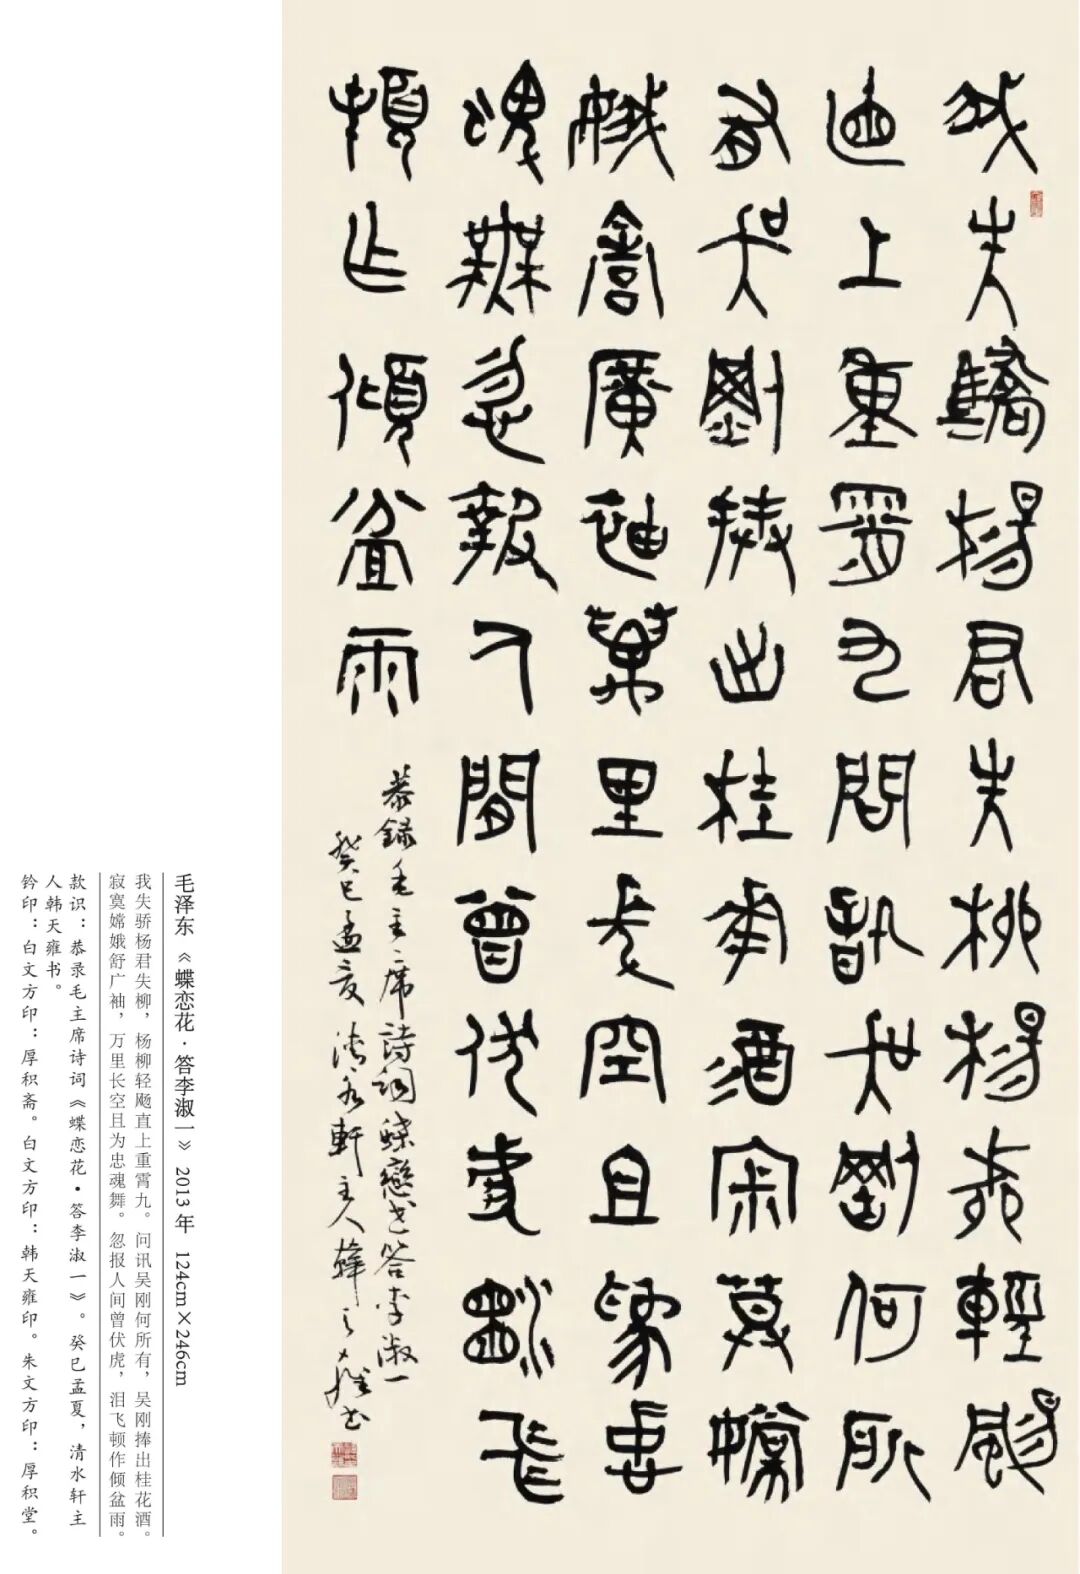 我失驕楊君失柳楊柳輕颺
直上重霄九問訊吳剛何所
有吳剛捧出桂花酒寂寞嫦
娥舒廣袖萬里長空且為忠
魂舞忽報人間曾伏虎淚飛
頓作傾盆雨
恭錄毛主席詩詞蝶戀花答李淑一
癸巳孟夏清水軒主人韓天雍書
毛泽东《蝶恋花·答李淑一》 2013年 124cm×246cm
我失骄杨君失柳，杨柳轻飏直上重霄九。问讯吴刚何所有，吴刚捧出桂花酒。
寂寞嫦娥舒广袖，万里长空且为忠魂舞。忽报人间曾伏虎，泪飞顿作倾盆雨。
款识：恭录毛主席诗词《蝶恋花·答李淑一》。癸巳孟夏，清水轩主
人韩天雍书。
钤印：白文方印：厚积斋。白文方印：韩天雍印。朱文方印：厚积堂。